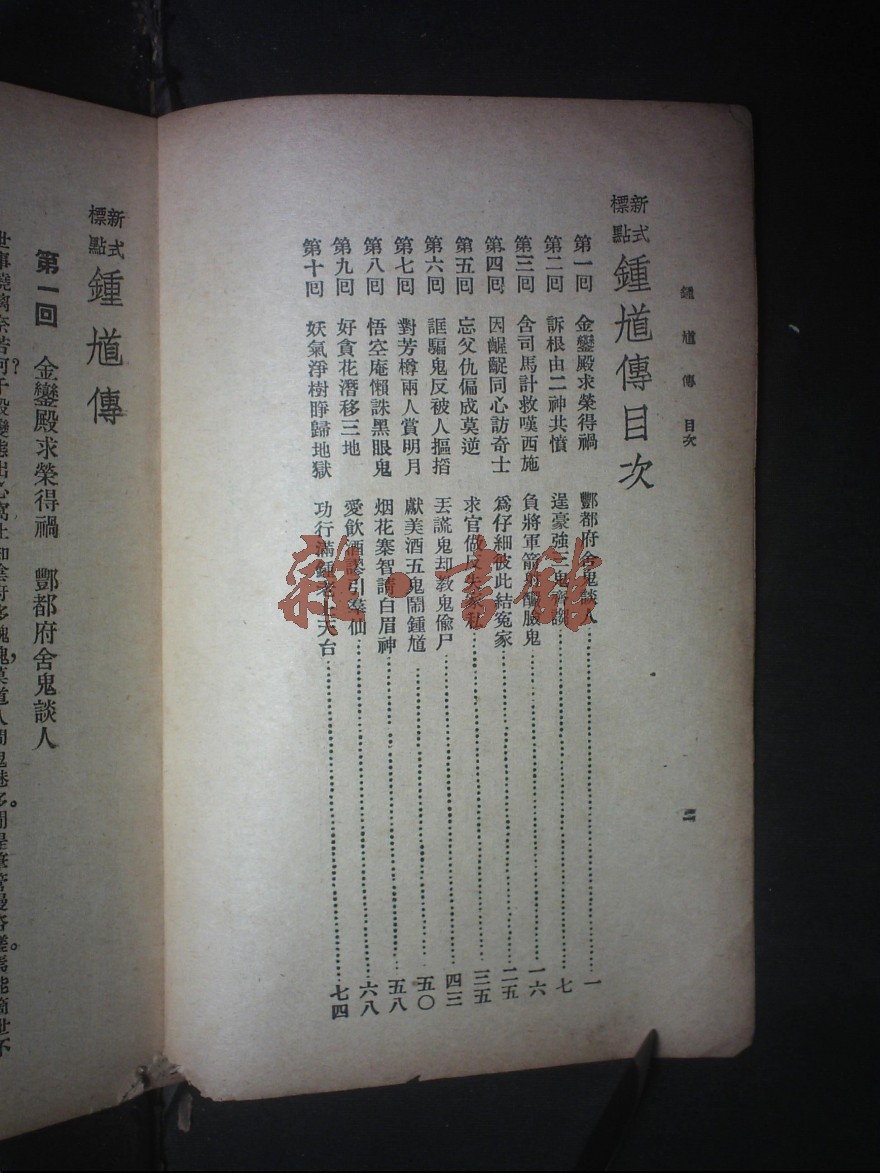 鍾馗傳 目次
新式標點 鍾馗傳目次
第一回 金鑾殿求榮得禍 酆都府舍鬼談人 一
第二回 訴根由二神共憤 逞豪強三鬼齊謅 七
第三回 含司馬計救嘆西施 負將軍箭射醃臉鬼 一六
第四回 因齷齪同心訪奇士 爲仔細彼此結冤家 二五
第五回 忘父仇偏成莫逆 求官做反失家私 三五
第六回 誆騙鬼反被人摳掐 丟謊鬼却教鬼偸尸 四三
第七回 對芳樽兩人賞明月 獻美酒五鬼鬧鍾馗 五〇
第八回 悟空庵懶誅黑眼鬼 烟花寨智請白眉神 五八
第九回 好貪花潛移三地 愛飲酒謬引羣仙 六八
第十回 妖氣淨樹睜歸地獄 功行滿鍾老上天台 七四
二
新式標點 鍾馗傳
第一回 金鑾殿求榮得禍 酆都府舍鬼談人
雜·書館